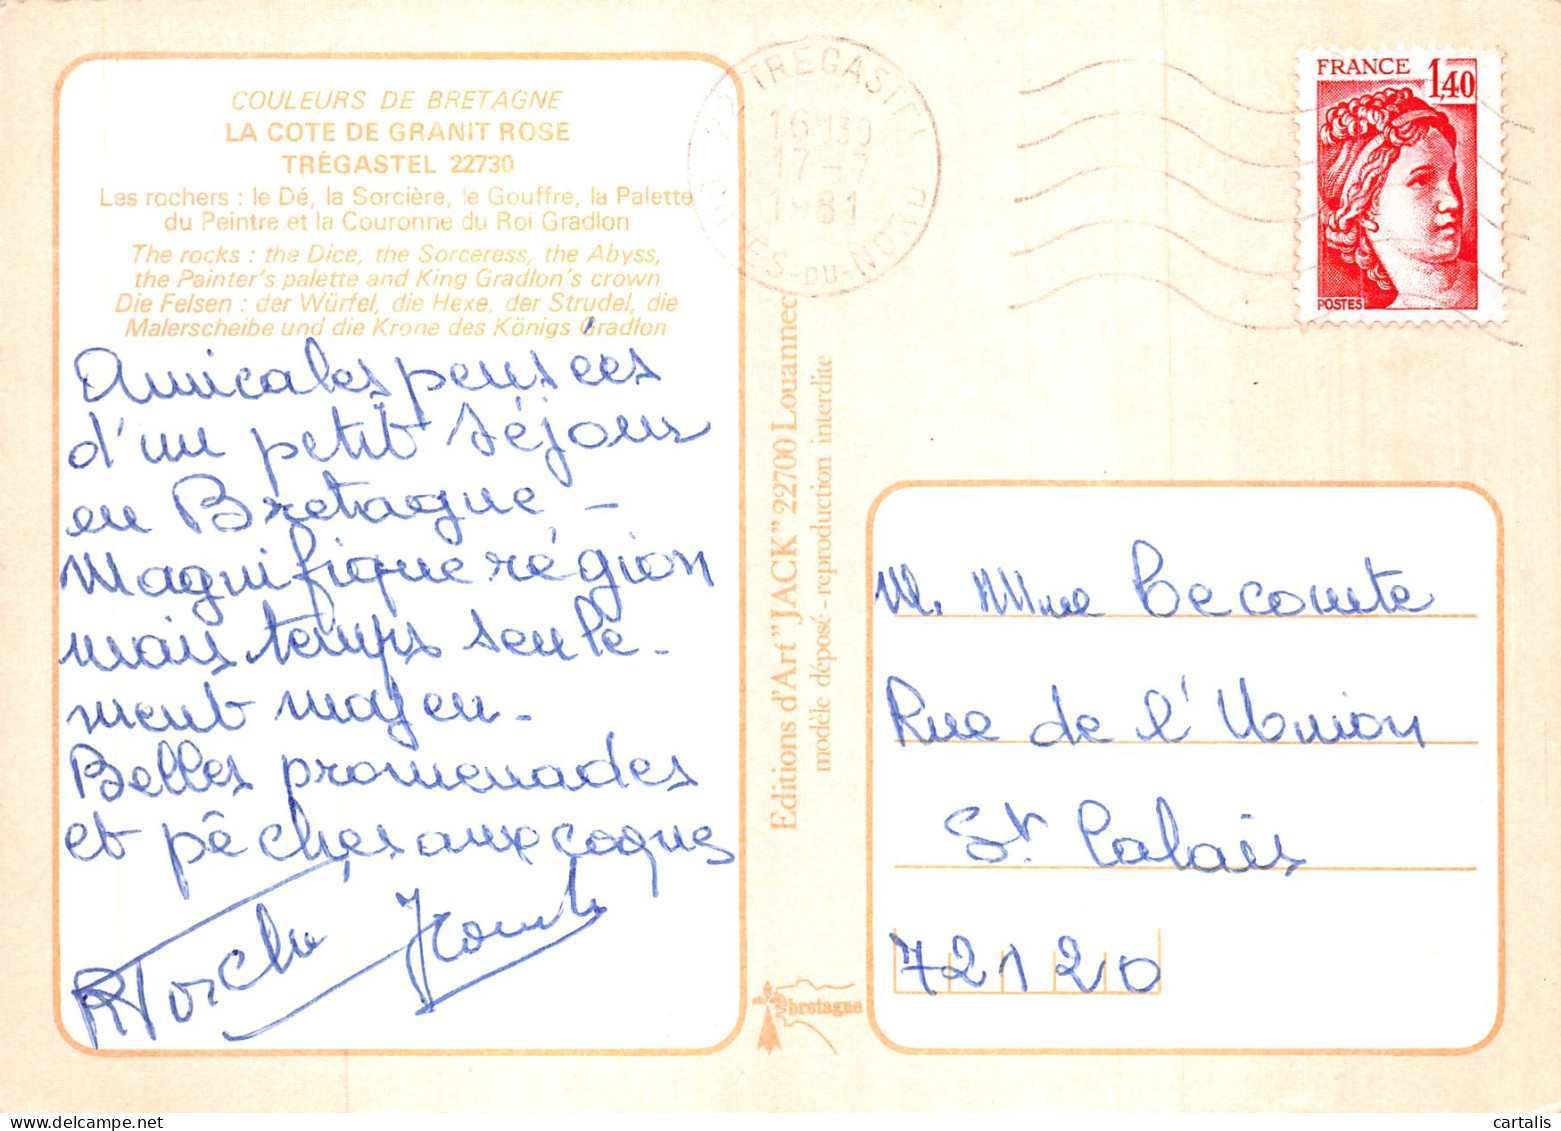 COULEURS DE BRETAGNE
LA COTE DE GRANIT ROSE
TRÉGASTEL 22730
Les rochers : le Dé, la Sorcière, le Gouffre, la Palette
du Peintre et la Couronne du Roi Gradlon
The rocks : the Dice, the Sorceress, the Abyss,
the Painter's palette and King Gradlon's crown
Die Felsen : der Würfel, die Hexe, der Strudel, die
Malerscheibe und die Krone des Königs Gradlon
Amicales pensées
d'un petit séjour
en Bretagne -
Magnifique région
mais temps seule-
ment moyen -
Belles promenades
et pêches aux coques
Editions d'Art "JACK" 22700 Louannec
modèle déposé - reproduction interdite
bretagne
22 TREGASTEL
16H30
17-7
1981
CÔTES-DU-NORD
FRANCE 1,40
POSTES
M. Mme Lecomte
Rue de l'Union
St Calais
72120
cartalis